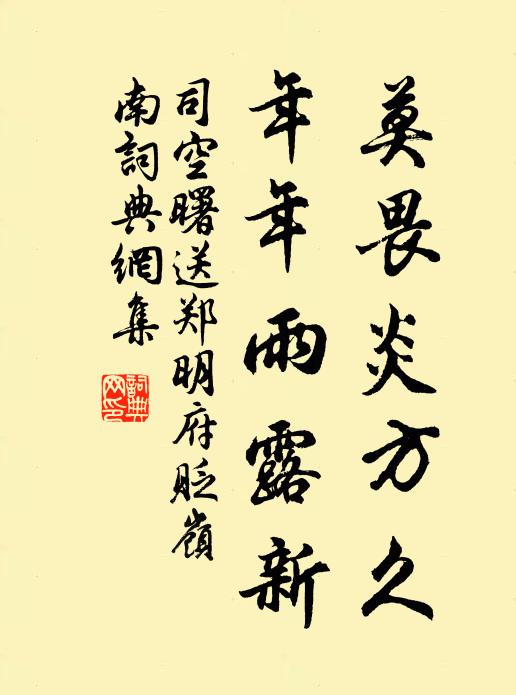 莫畏炎方久
年年雨露新
司空曙送郑明府贬嶺
南詞典網集
詞典
网印